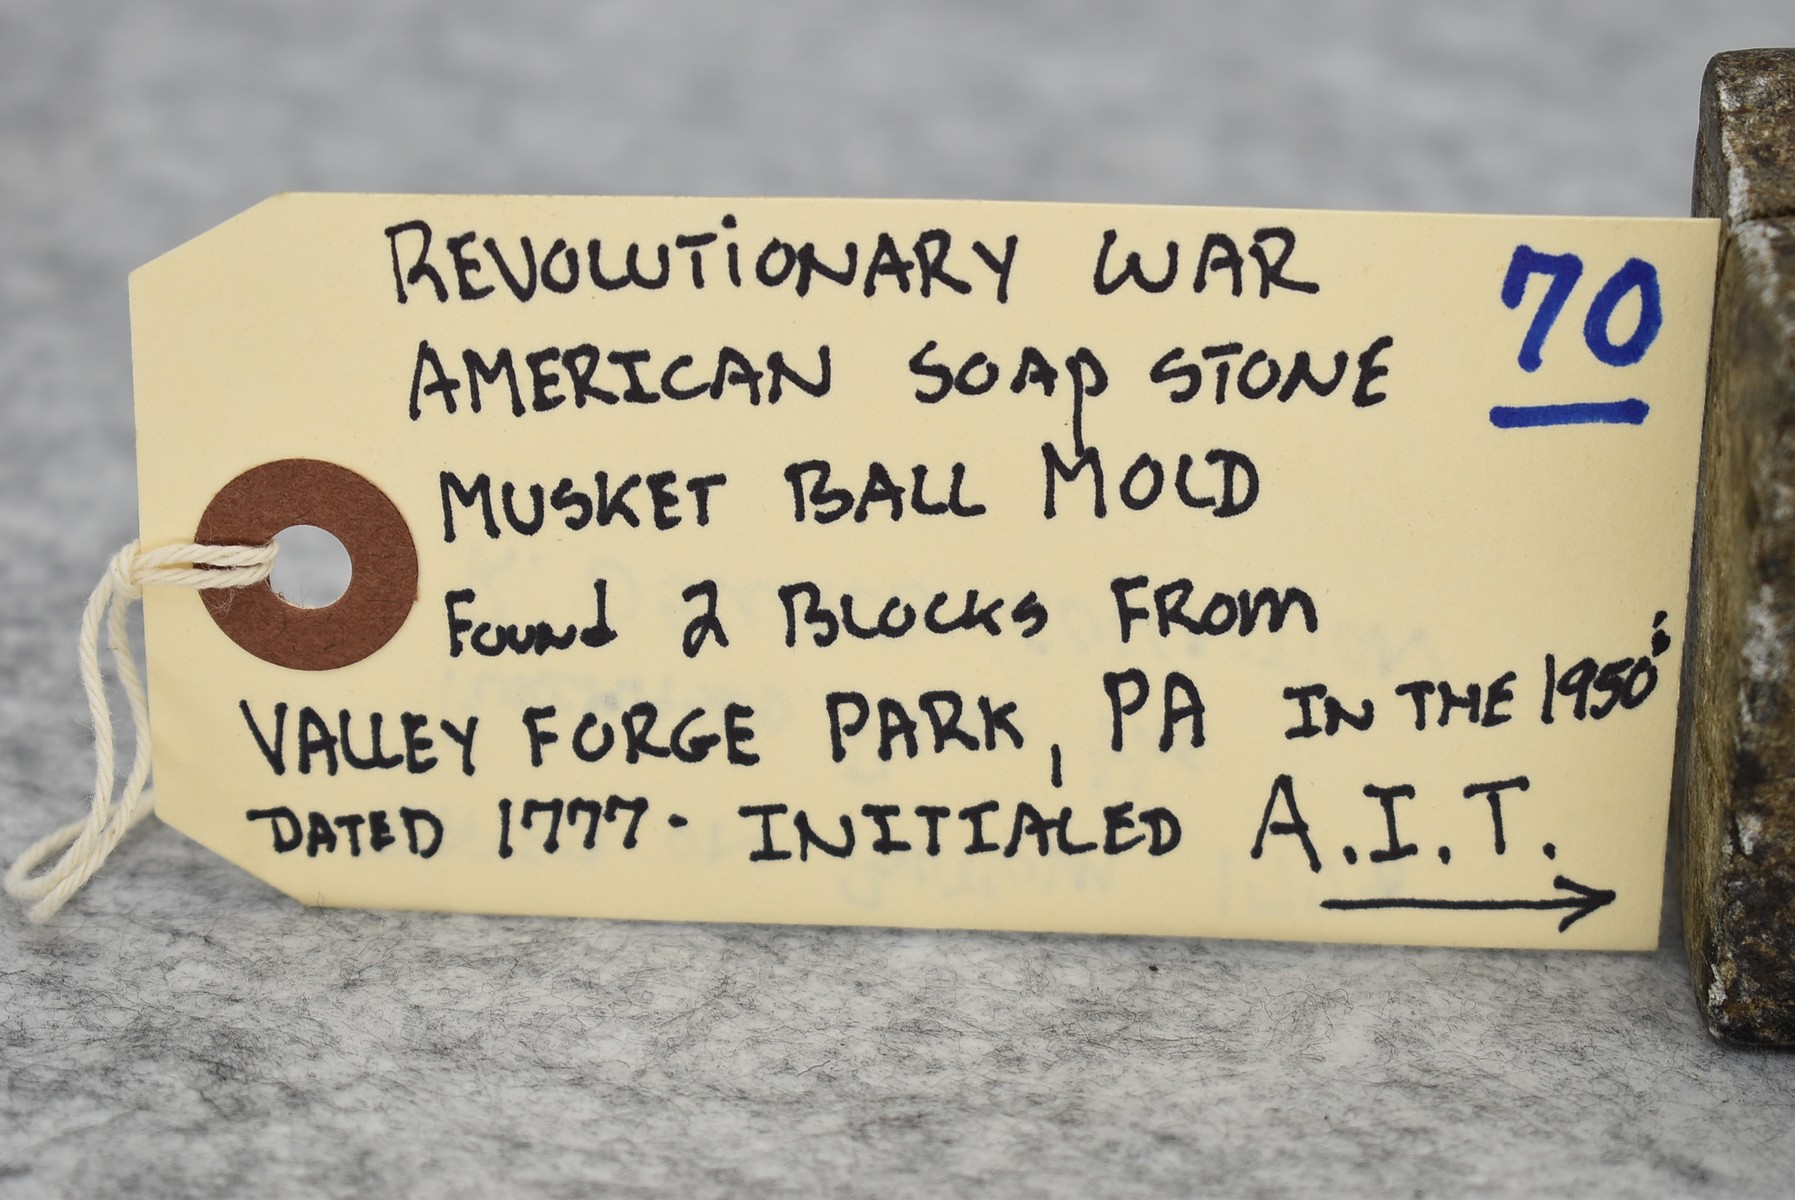 REVOLUTIONARY WAR
70
AMERICAN SOAP STONE
MUSKET BALL MOLD
FOUND 2 BLOCKS FROM
VALLEY FORGE PARK, PA IN THE 1950's
DATED 1777 · INITIALED A.I.T.
→